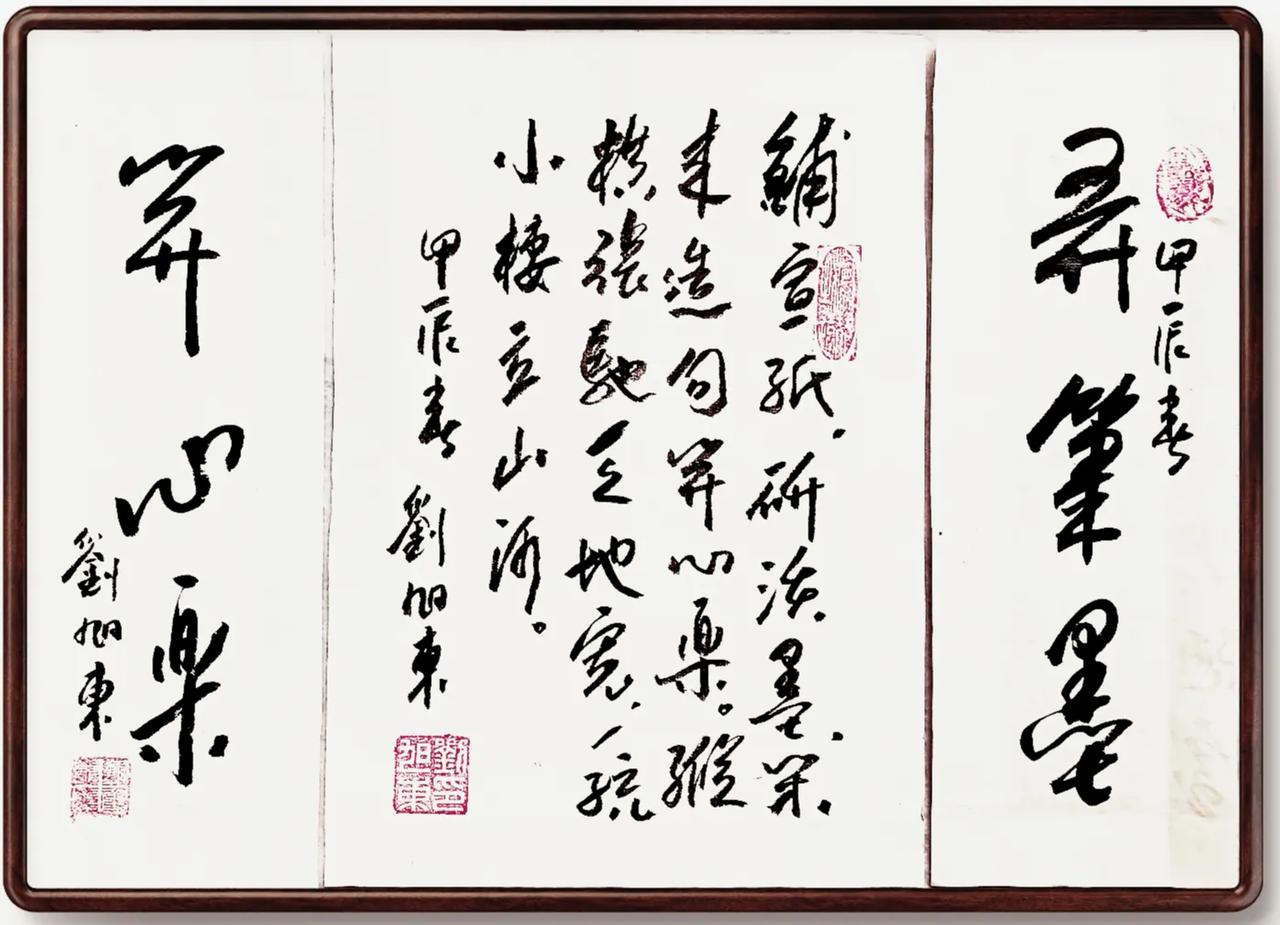 甲辰春
弄筆墨
鋪宣紙，研淡墨，
來造句心樂。縱
橫張馳天地寬，一統
小樓立山河。
甲辰春 劉旭東
劉印旭東
心樂
劉旭東